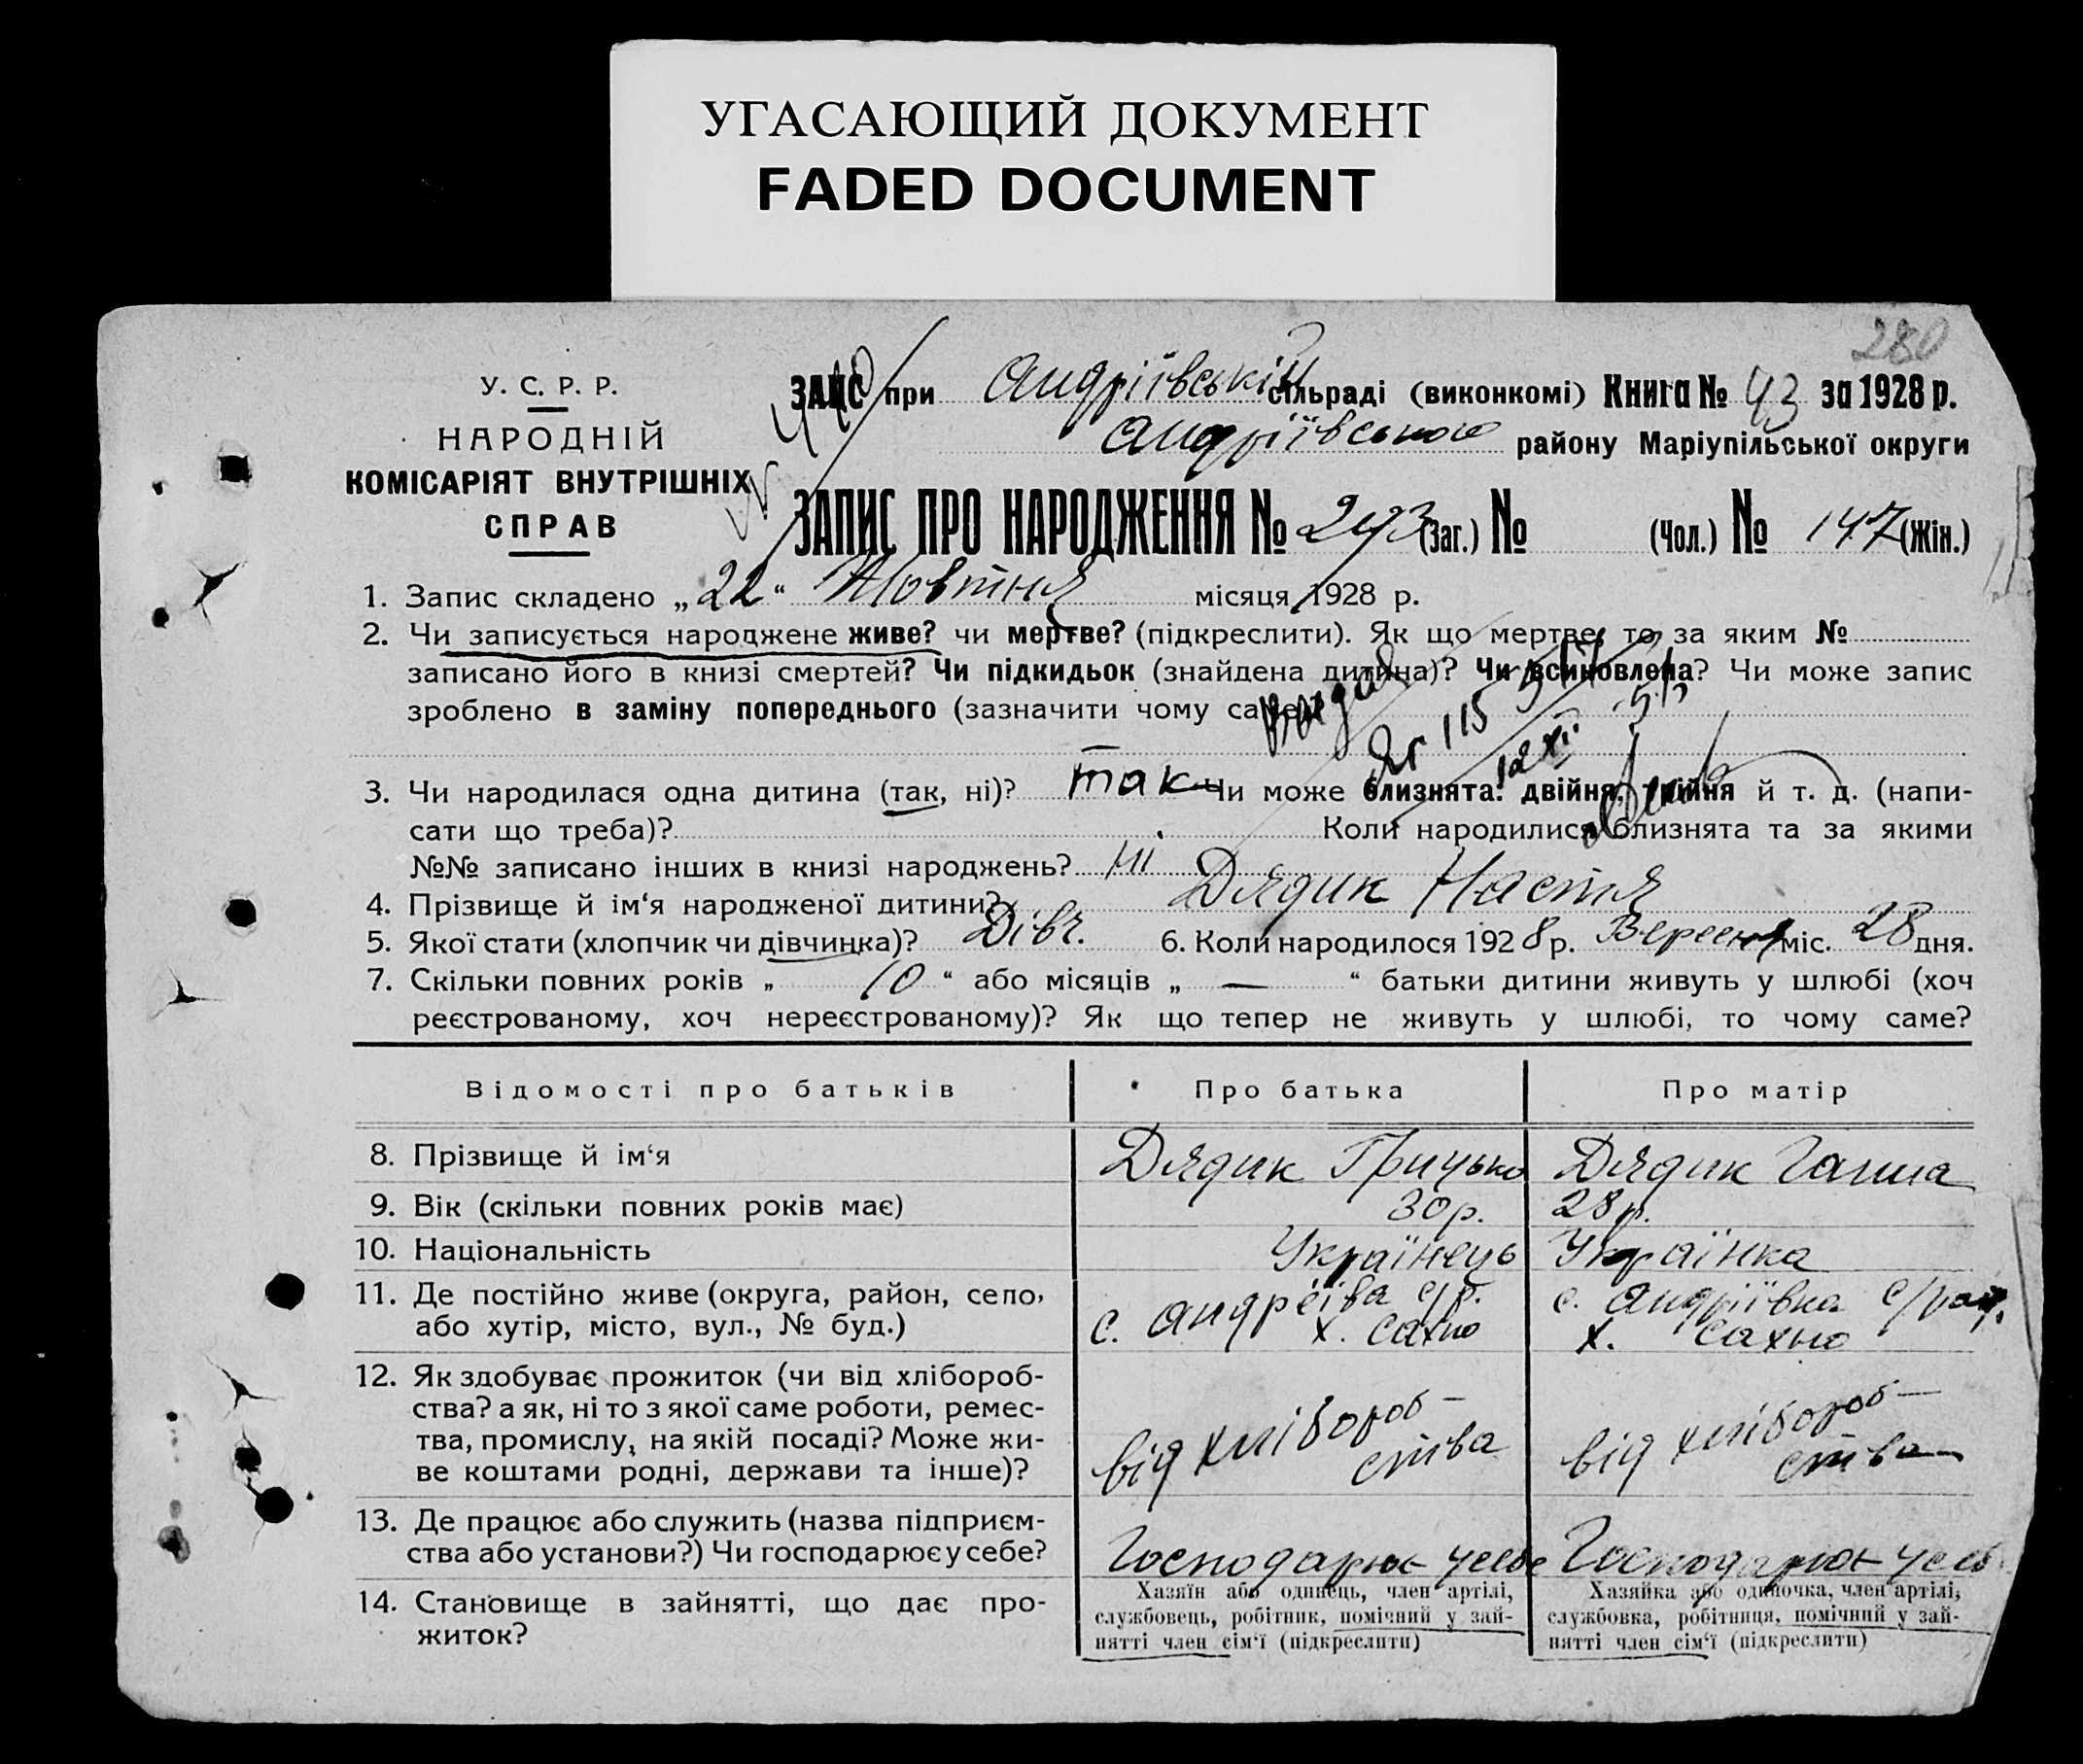 УГАСАЮЩИЙ ДОКУМЕНТ
FADED DOCUMENT
280
У. С. Р. Р.
НАРОДНІЙ
КОМІСАРІЯТ ВНУТРІШНІХ
СПРАВ
ЗАЦС при Андріївській сільраді (виконкомі) Книга № 43 за 1928 р.
Андріївського району Маріупільської округи
ЗАПИС ПРО НАРОДЖЕННЯ № 293 (Заг.) № (Чол.) № 147 (Жін.)
1. Запис складено „22“ Жовтня місяця 1928 р.
2. Чи записується народжене живе? чи мертве? (підкреслити). Як що мертве, то за яким №
записано його в книзі смертей? Чи підкидьок (знайдена дитина)? Чи всиновлена? Чи може запис
зроблено в заміну попереднього (зазначити чому саме)?
3. Чи народилася одна дитина (так, ні)? так Чи може близнята: двійня, трійня й т. д. (напи-
сати що треба)? Коли народилися близнята та за якими
№№ записано інших в книзі народжень? ні
4. Прізвище й ім‘я народженої дитини? Дядик Настя
5. Якої стати (хлопчик чи дівчинка)? Дівч. 6. Коли народилося 1928 р. Вересня міс. 28 дня.
7. Скільки повних років „ 10 “ або місяців „ — “ батьки дитини живуть у шлюбі (хоч
реєстрованому, хоч нереєстрованому)? Як що тепер не живуть у шлюбі, то чому саме?
Відомості про батьків Про батька Про матір
8. Прізвище й ім‘я Дядик Грицько Дядик Ганна
9. Вік (скільки повних років має) 30 р. 28 р.
10. Національність Українець Українка
11. Де постійно живе (округа, район, село,
або хутір, місто, вул., № буд.)
с. Андреїва с/р.
х. Сахно
с. Андріївка с/рад.
х. Сахно
12. Як здобуває прожиток (чи від хлібороб-
ства? а як, ні то з якої саме роботи, ремес-
тва, промислу, на якій посаді? Може жи-
ве коштами родні, держави та інше)?
від хлібороб-
ства
від хлібороб-
ства
13. Де працює або служить (назва підприєм-
ства або установи?) Чи господарює у себе?
Господарює у себе
Господарює у себ
14. Становище в зайнятті, що дає про-
житок?
Хазяїн або одинець, член артілі,
службовець, робітник, помічний у зай-
нятті член сім‘ї (підкреслити)
Хазяйка або одиночка, член артілі,
службовка, робітниця, помічний у зай-
нятті член сім‘ї (підкреслити)